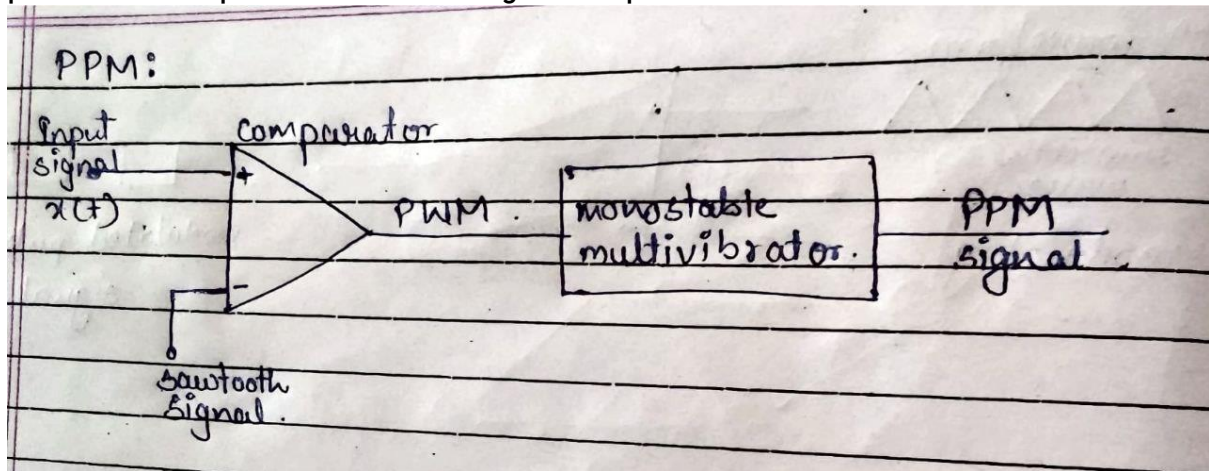 PPM:
Input
signal
x(t)
comparator
+
-
PWM
monostable
multivibrator.
PPM
signal
sawtooth
signal.